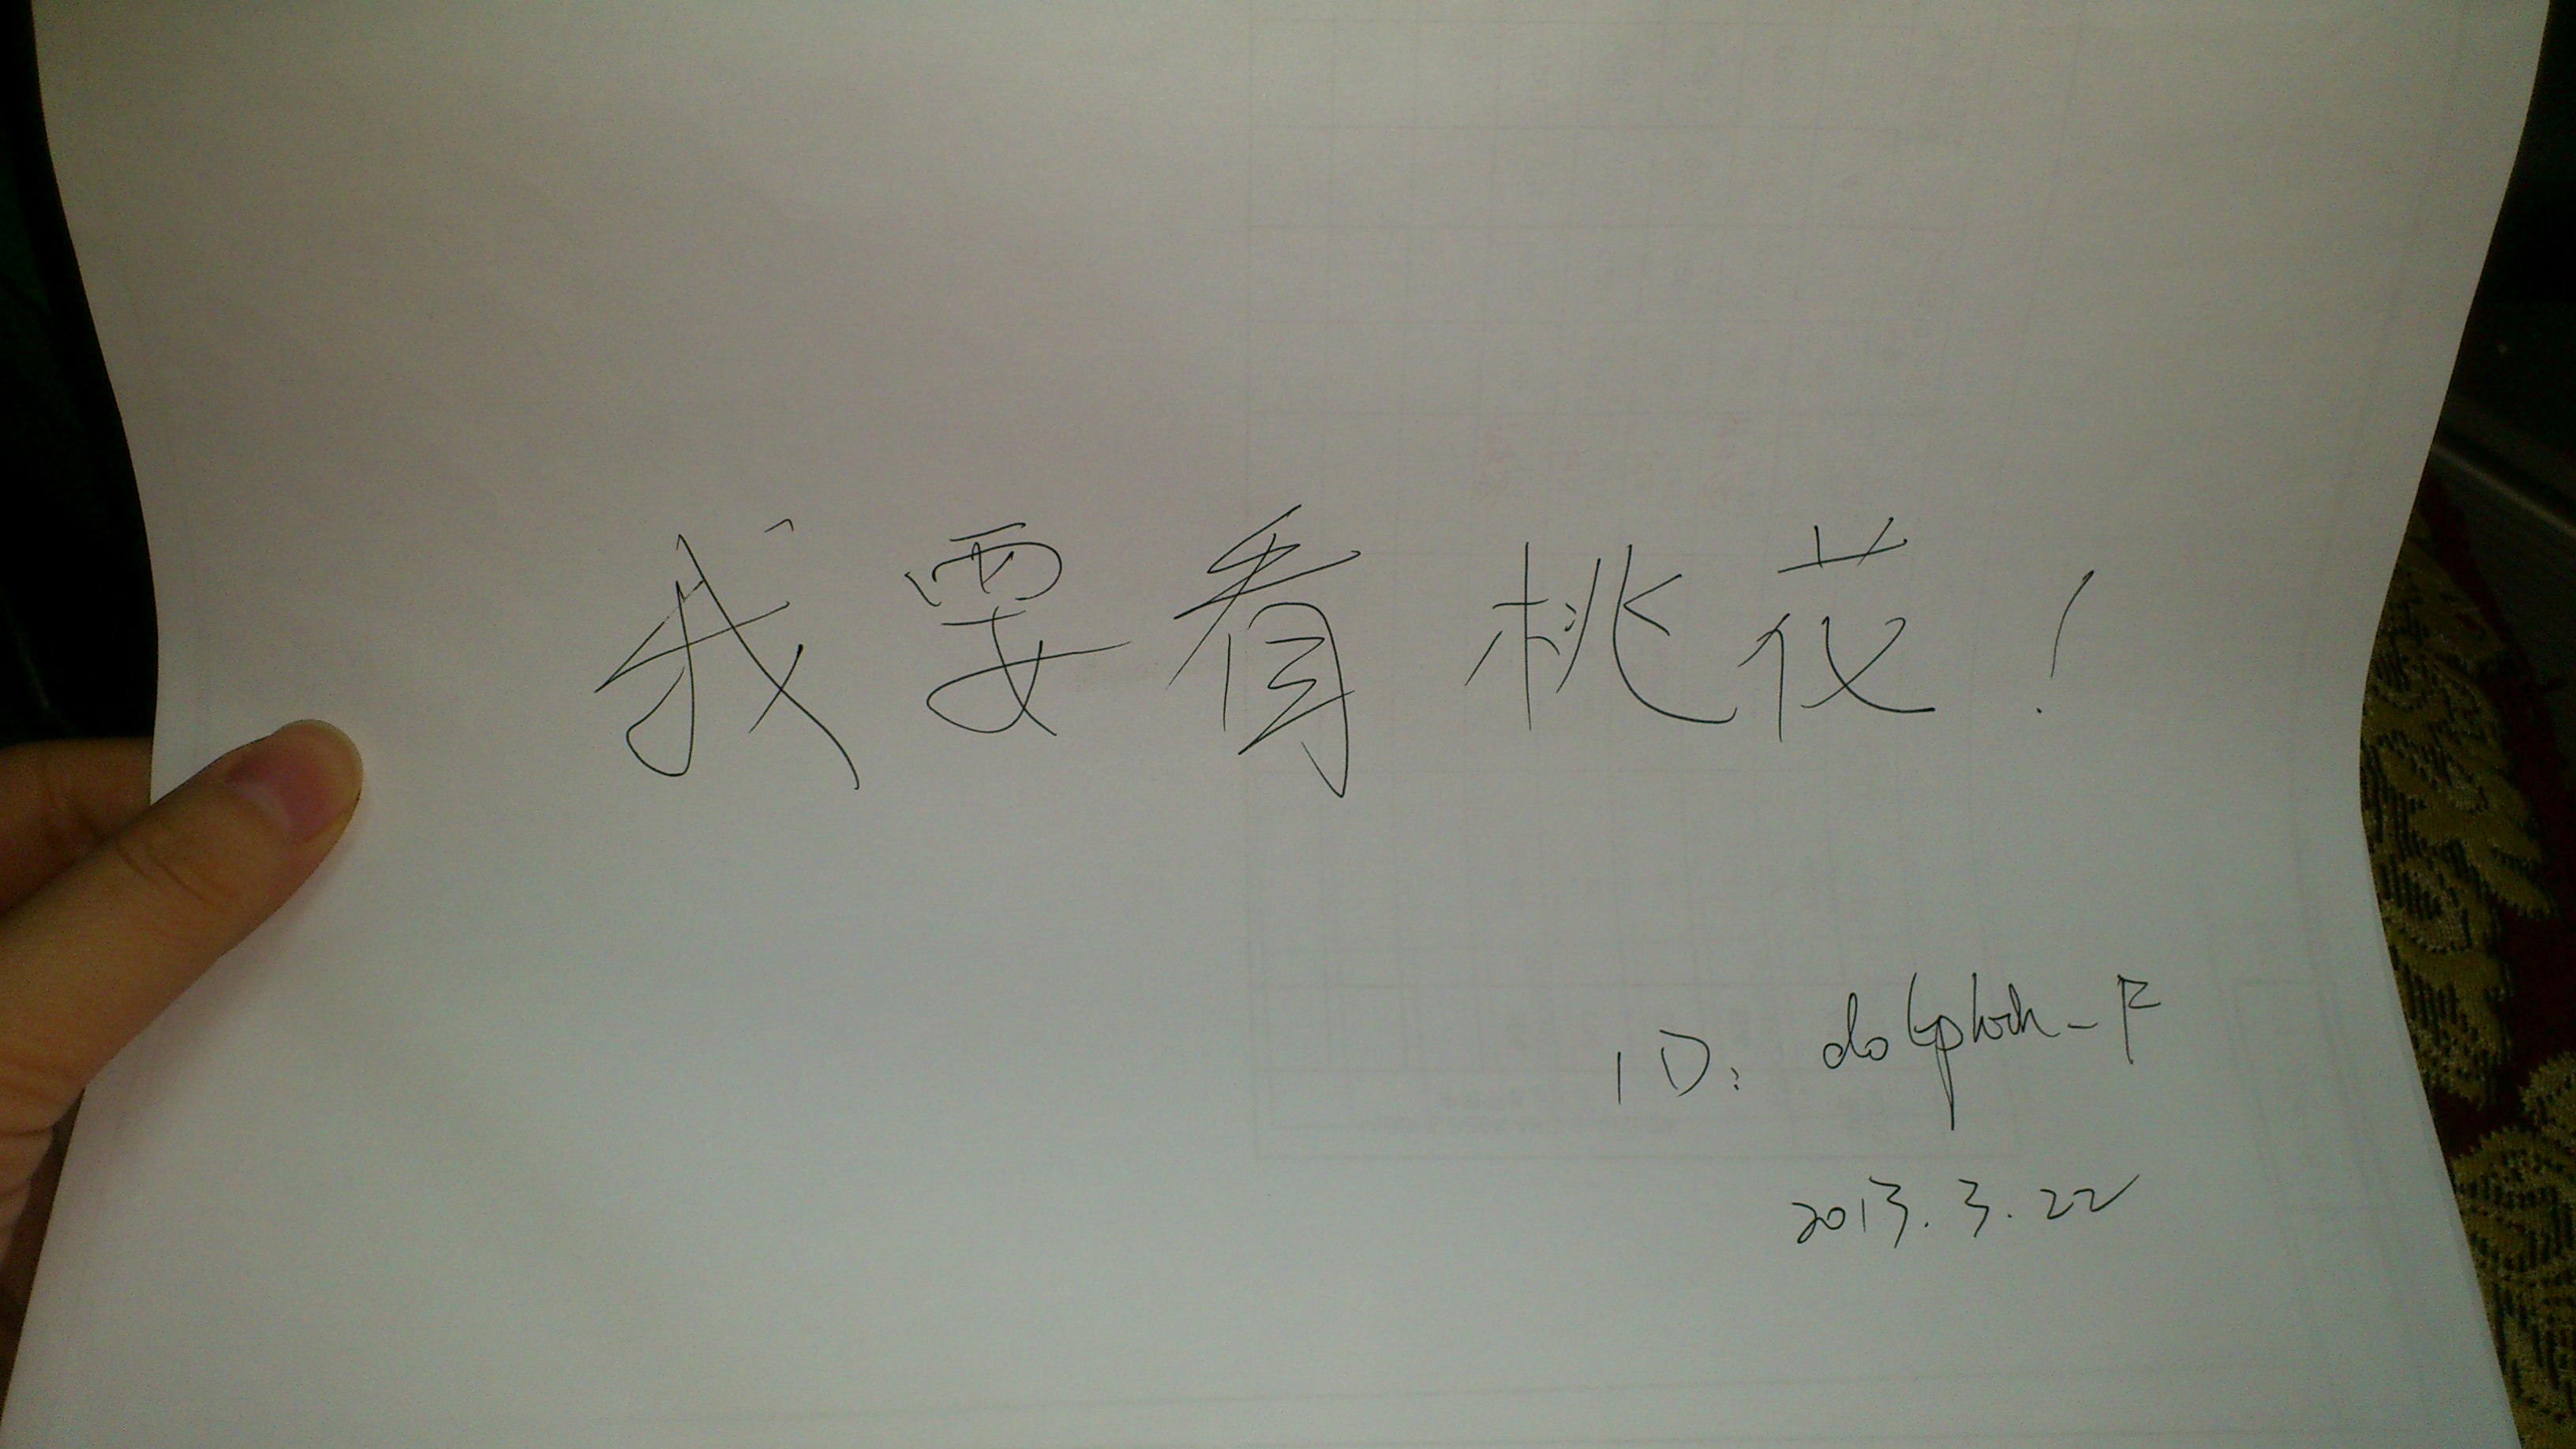 我要看桃花！
ID: dolphin_F
2013.3.22